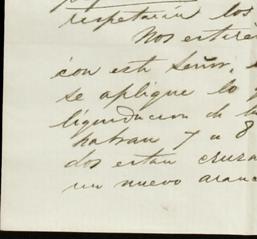 respetarín los
Nos
con este Señor,
se aplique lo
liquidacion de
habran 7 u 8
dos estan cruza
un nuevo aranc